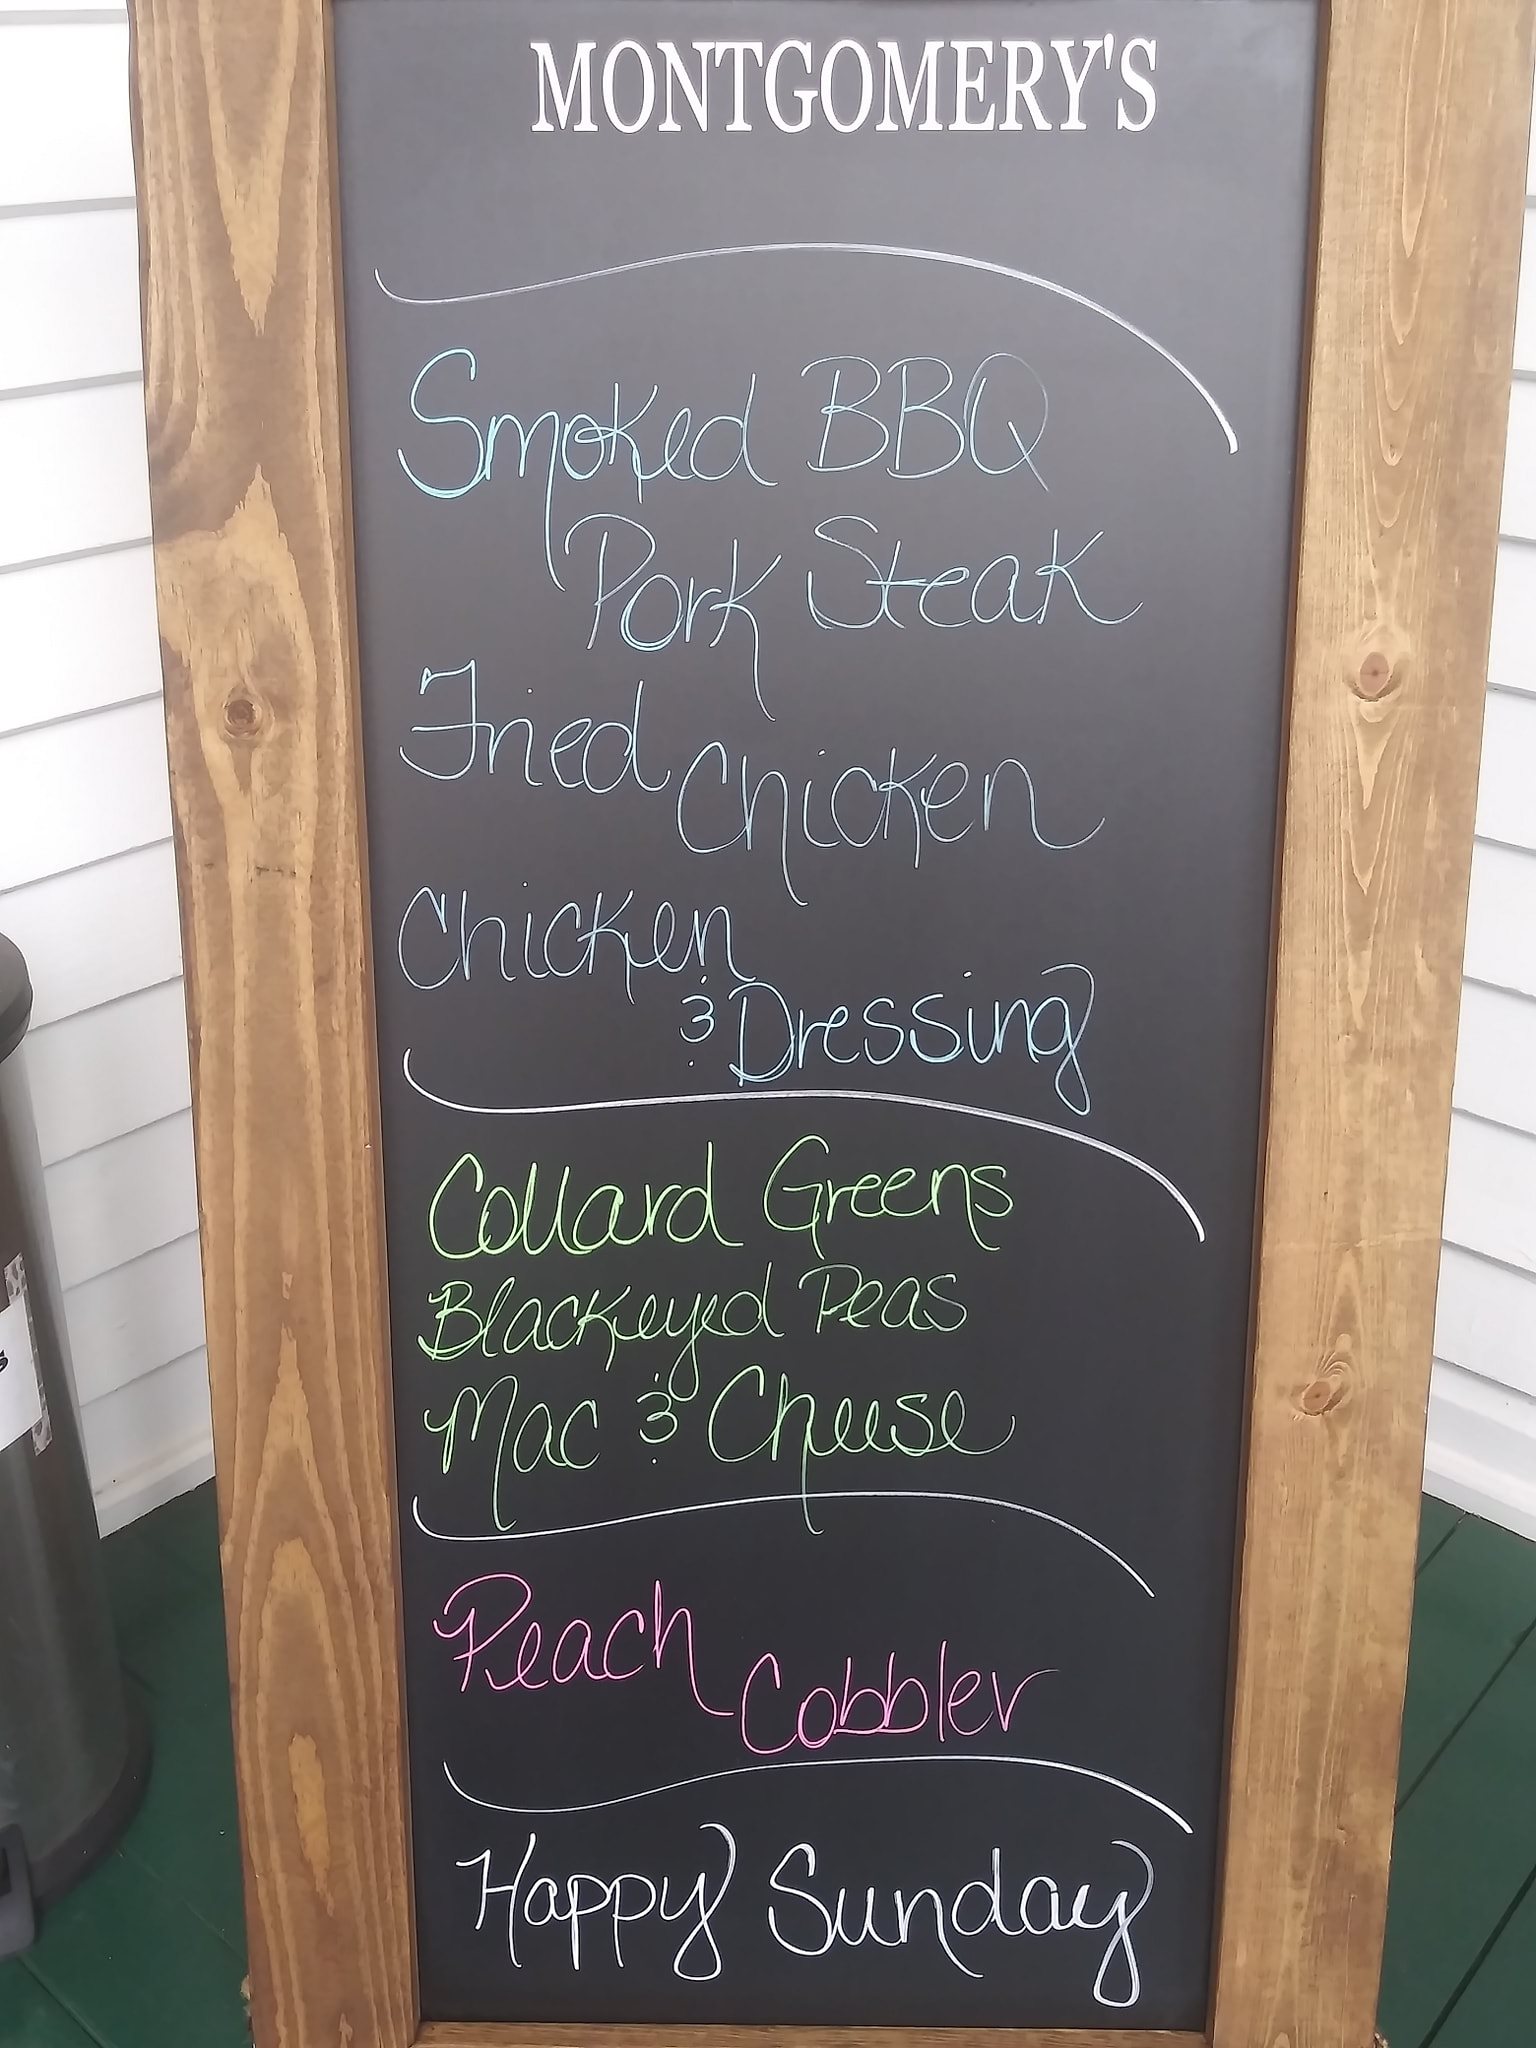 MONTGOMERY'S
Smoked BBQ
Pork Steak
Fried Chicken
Chicken
& Dressing
Collard Greens
Blackeyed Peas
Mac & Cheese
Peach Cobbler
Happy Sunday